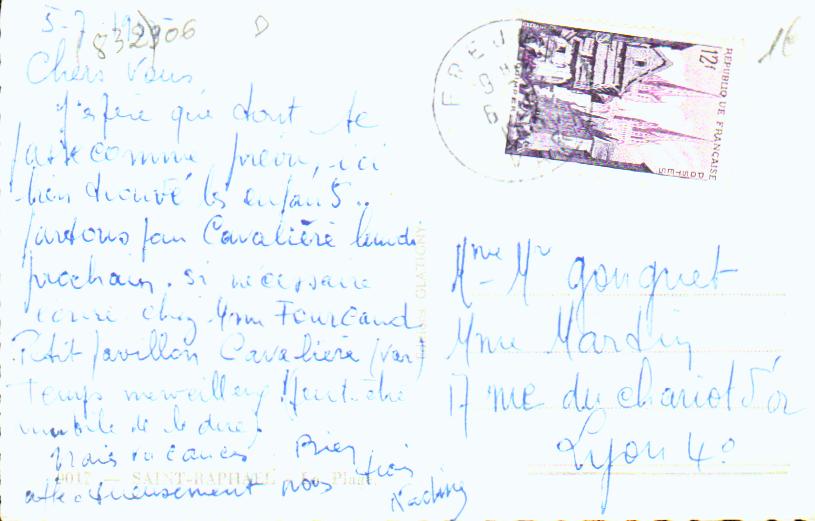 5-7
832306
D
Chers Vous
J'espère que tout se
passe comme prévu, ici
bien trouvé les enfants..
partons pour Cavalière lundi
prochain. si nécessaire
écrire chez Mme Fourcand
Petit Pavillon Cavalière (Var)
Temps merveilleux ! peut-être
inutile de le dire
vraies vacances. Bien
affectueusement nous trois
Nadine
9017 — SAINT-RAPHAEL - La Plage
GLATIGNY
FREJU
12f
REPUBLIQUE FRANÇAISE
POSTES
QUIMPER
Mme Mr Gonguet
Mme Martin
17 rue du chariot d'or
Lyon 4°